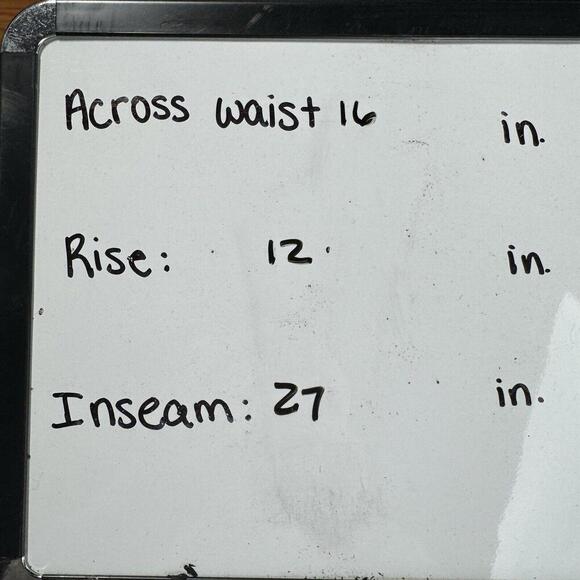 Across waist 16 in.
Rise: 12 in.
Inseam: 27 in.